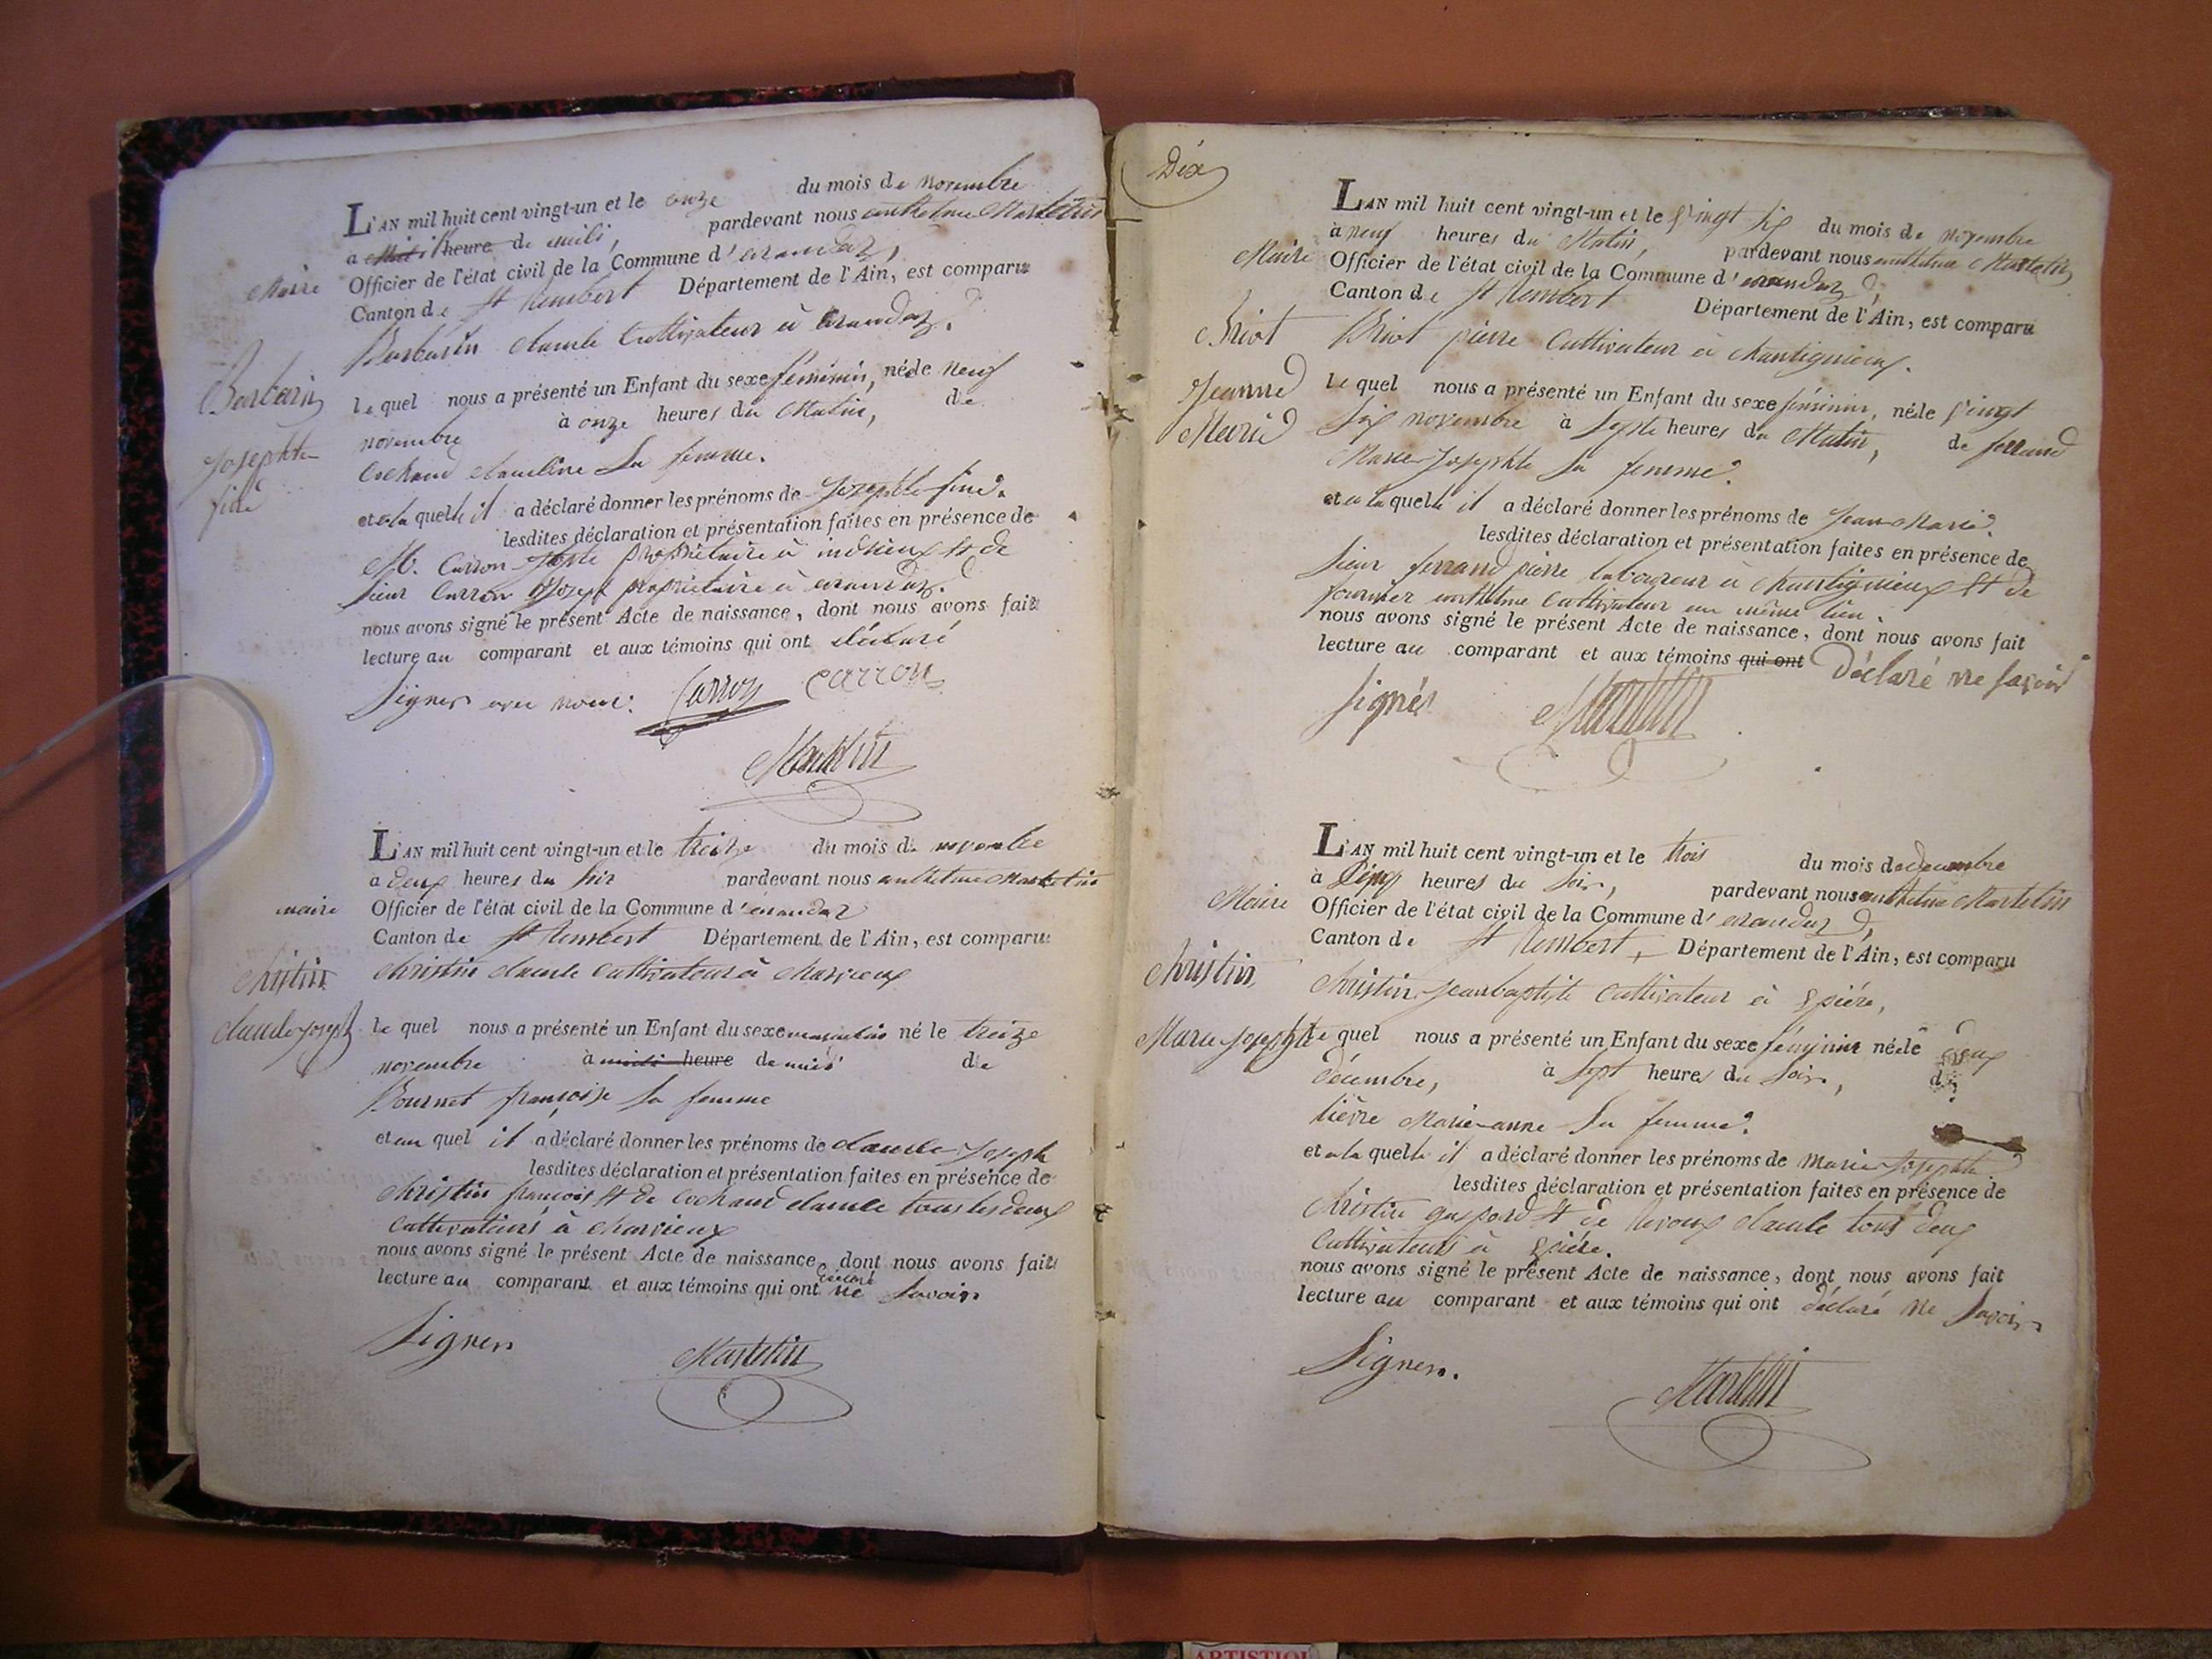 L'AN mil huit cent vingt-un et le onze du mois de novembre
a heure de midi, pardevant nous anthelme Martelin
Maire Officier de l'état civil de la Commune d'arandaz,
Canton de St Rembert Département de l'Ain, est comparu
Barbarin claude Cultivateur à arandaz.
Barbarin
le quel nous a présenté un Enfant du sexe féminin, née le neuf
novembre à onze heures du Matin, de
Josephte
fine
Cochand claudine Sa femme.
et a la quelle il a déclaré donner les prénoms de Josephte fine.
lesdites déclaration et présentation faites en présence de
M. Carron propriétaire à indrieux et de
sieur Carron Joseph propriétaire à arandaz.
nous avons signé le présent Acte de naissance, dont nous avons fait
lecture au comparant et aux témoins qui ont déclaré
Signer avec nous: Carron Carron
Martelin
L'AN mil huit cent vingt-un et le treize du mois de novembre
a deux heures du Soir pardevant nous anthelme Martelin
maire Officier de l'état civil de la Commune d'arandaz
Canton de St Rembert Département de l'Ain, est comparu
christin christin claude Cultivateur à
claude Joseph le quel nous a présenté un Enfant du sexe masculin né le treize
novembre à midi heure de midi de
Bournet françoise Sa femme
et au quel il a déclaré donner les prénoms de claude Joseph
lesdites déclaration et présentation faites en présence de
christin françois et de Cochand claude tous les deux
Cultivateurs à
nous avons signé le présent Acte de naissance, dont nous avons fait
lecture au comparant et aux témoins qui ont déclaré ne Savoir
Signer Martelin
Dix
L'AN mil huit cent vingt-un et le Vingt Six du mois de novembre
à neuf heures du Matin, pardevant nous anthelme Martelin
Maire Officier de l'état civil de la Commune d'arandaz,
Canton de St Rembert Département de l'Ain, est comparu
Briot Briot pierre Cultivateur à
Jeanne le quel nous a présenté un Enfant du sexe féminin, née le Vingt
Marie Six novembre à Septe heures du Matin, de ferrand
Marie Josephte Sa femme.
et a la quelle il a déclaré donner les prénoms de Jean Marie.
lesdites déclaration et présentation faites en présence de
Sieur ferrand pierre laboureur à et de
fournier anthelme Cultivateur au même lieu.
nous avons signé le présent Acte de naissance, dont nous avons fait
lecture au comparant et aux témoins qui ont Déclaré ne Savoir
Signer Martelin
L'AN mil huit cent vingt-un et le trois du mois de decembre
à Cinq heures du Soir, pardevant nous anthelme Martelin
Maire Officier de l'état civil de la Commune d'arandaz,
Canton de St Rembert, Département de l'Ain, est comparu
christin christin Jean baptiste Cultivateur à
Marie Josephte le quel nous a présenté un Enfant du sexe féminin née le deux
décembre, à Sept heures du Soir, de
lièvre Marie-anne Sa femme.
et a la quelle il a déclaré donner les prénoms de Marie Josephte
lesdites déclaration et présentation faites en présence de
christin gaspard et de claude tous deux
Cultivateurs à
nous avons signé le présent Acte de naissance, dont nous avons fait
lecture au comparant et aux témoins qui ont déclaré ne Savoir
Signer. Martelin